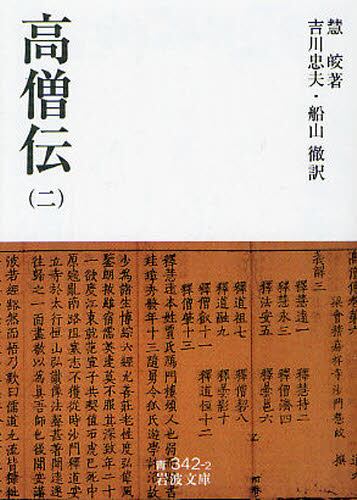 慧皎著
吉川忠夫・船山徹訳
高僧伝
(二)
義解三 梁會稽嘉祥寺沙門慧
釋慧遠一 釋慧持二
釋慧永三 釋僧濟四
釋法安五 釋曇邕六
釋道祖七 釋僧䂮八
釋道融九 釋曇影十
釋僧叡十一 釋道恒十二
釋僧肇十三
釋慧遠本姓賈氏鴈門樓煩人也弱
珪璋秀發年十三隨舅令狐氏遊學許洛故
少為諸生博綜六經尤善莊老性度弘偉風
鑒朗拔雖宿儒英達莫不服其深致年二十
一欲度江東就范宣子共契值石虎已死中
原寇亂南路阻塞志不獲從時沙門釋道安
立寺於太行恒山弘贊像法聲甚著聞遠遂
往歸之一面盡敬以為真吾師也後聞安講
波若經豁然而悟乃歎曰儒道九流
青 342-2
岩波文庫